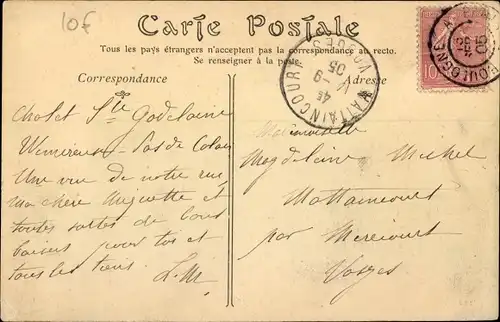 10f
Carte Postale
Tous les pays étrangers n'acceptent pas la correspondance au recto.
Se renseigner à la poste.
Correspondance
Adresse
Chalet Ste Godeleine
Wimereux - Pas de Calais
Une vue de notre rue,
ma chère Mignette et
toutes sortes de bons
baisers pour toi et
tous les tiens. L.M
Mademoiselle
Magdeleine Michel
Mattaincourt
par Mirecourt
Vosges
MATTAINCOURT VOSGES
9
05
10
BOULOGNE